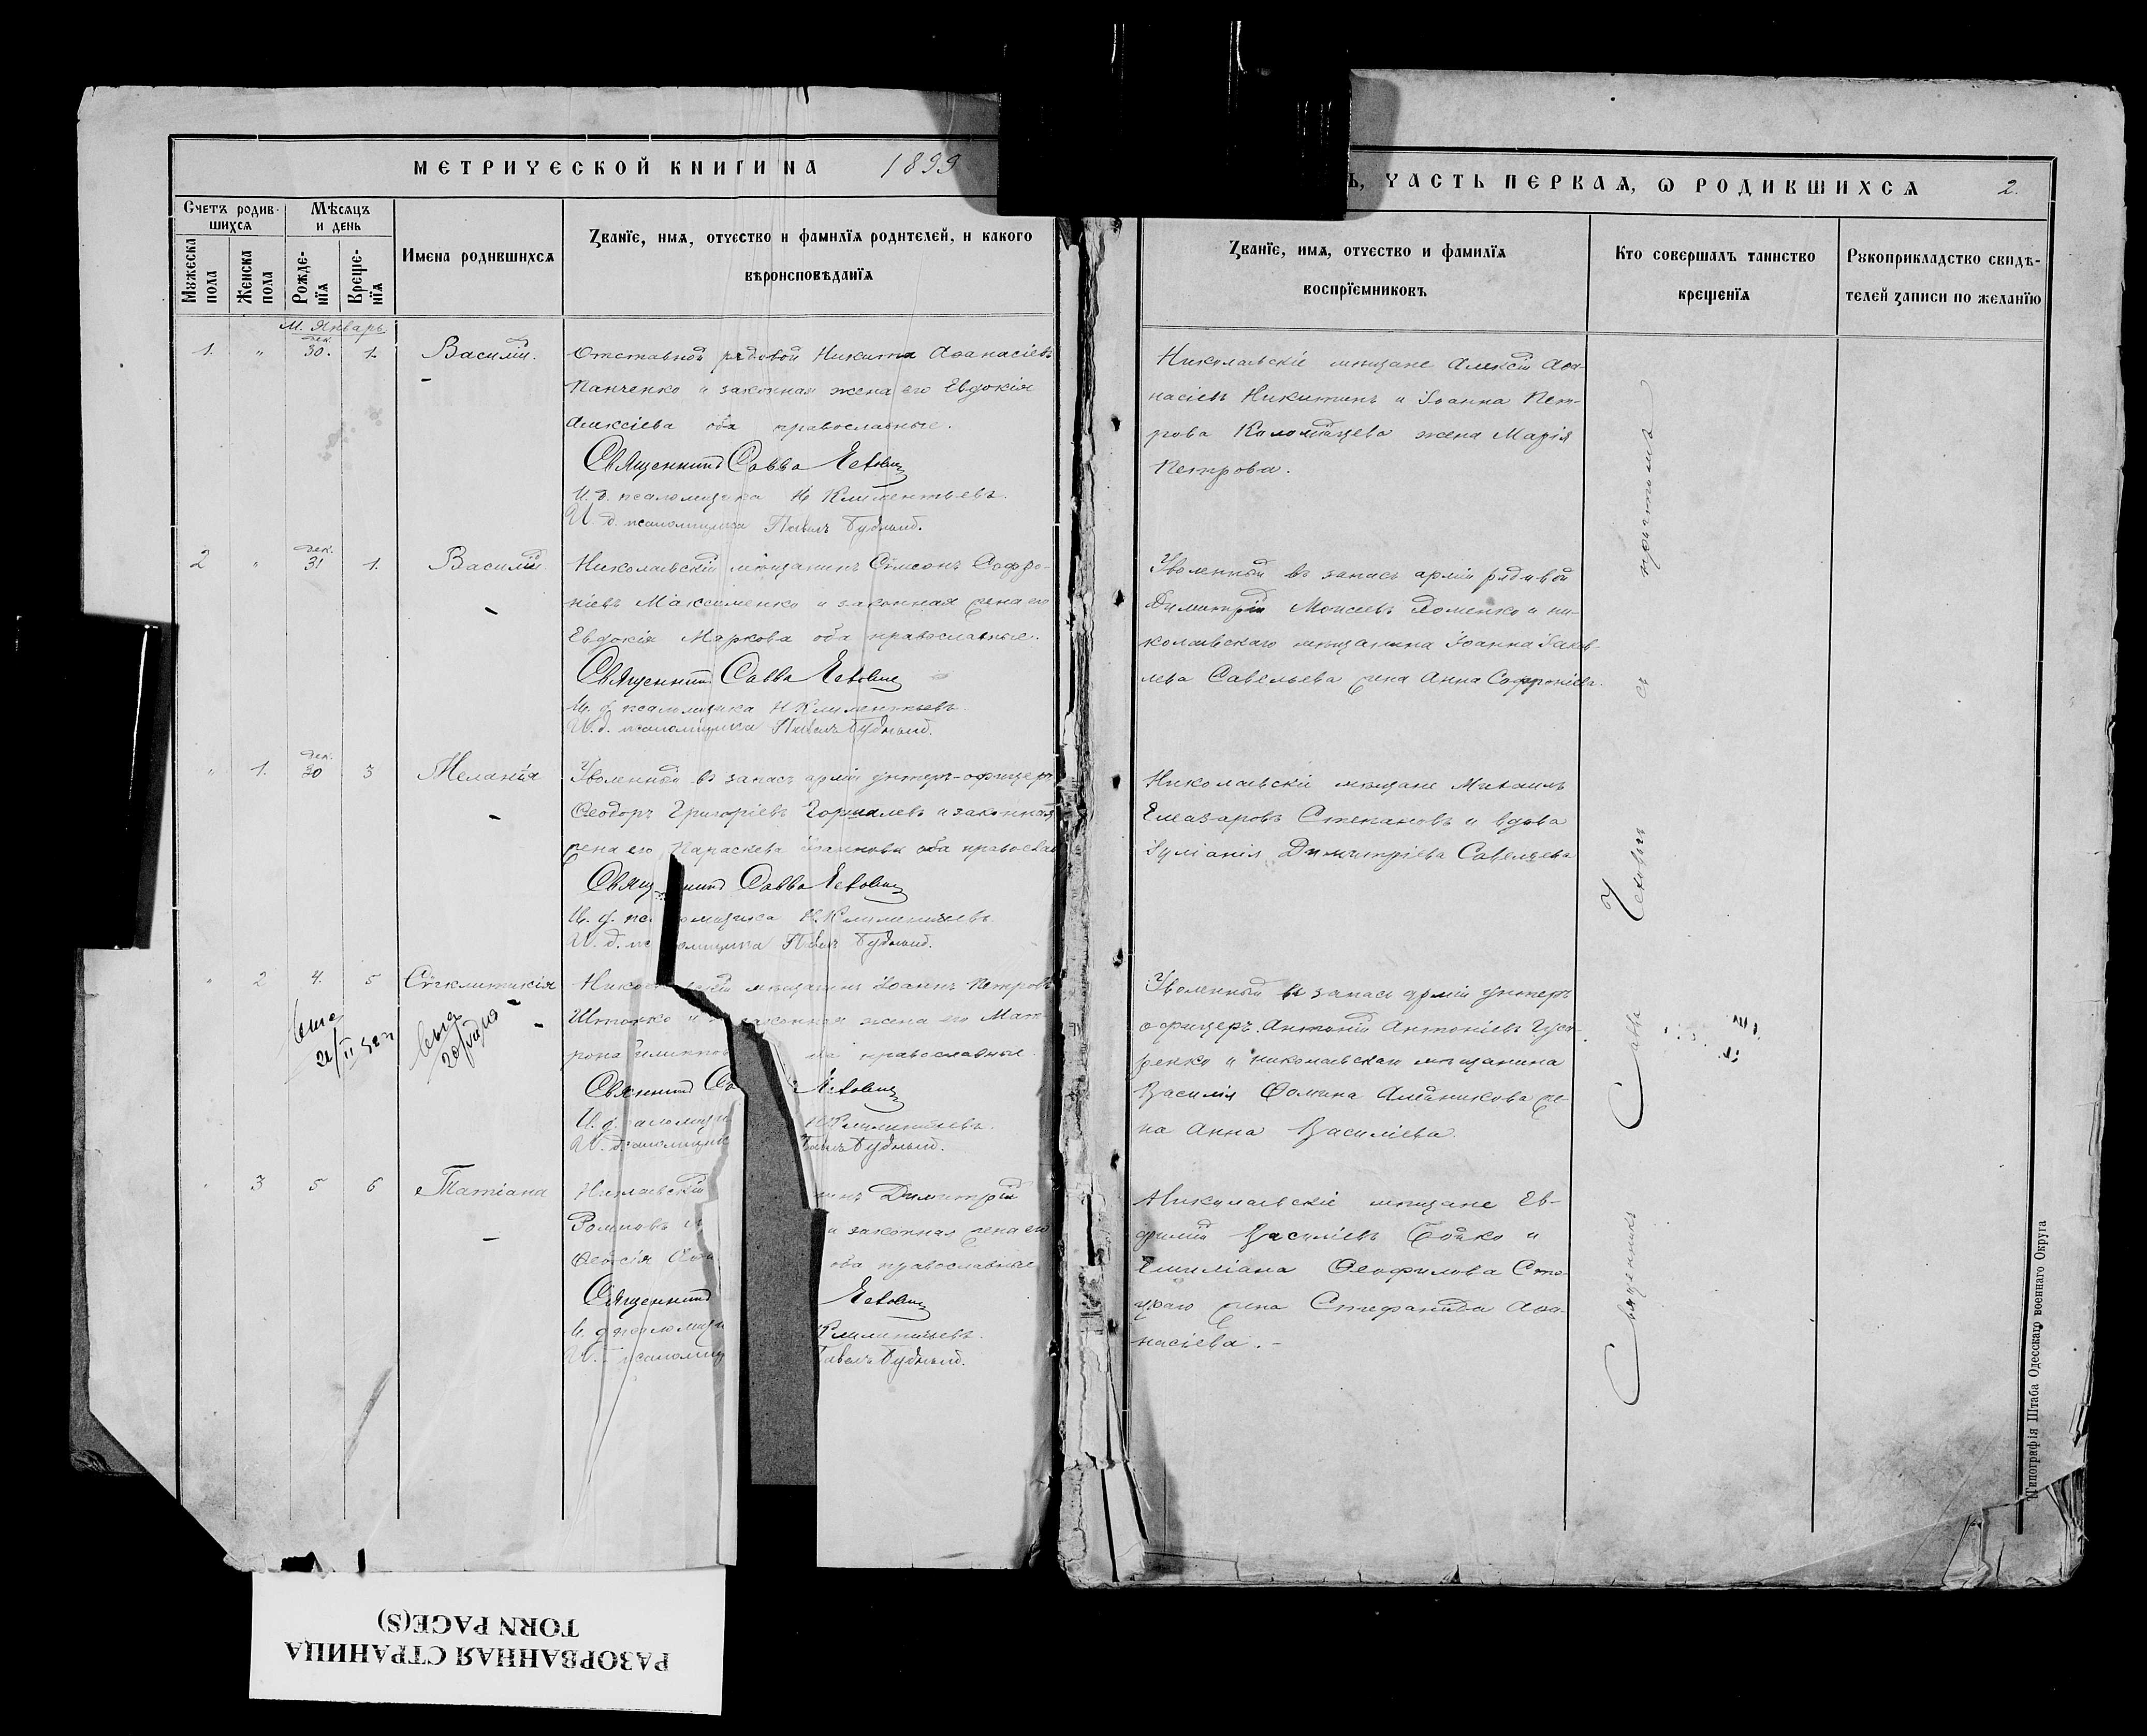 МЕТРИЧЕСКОЙ КНИГИ НА 1899
Ъ, ЧАСТЬ ПЕРВАЯ, Ѡ РОДИВШИХСЯ 2.
Счетъ родив-
шихся
Мѣсяцъ
и день
Мужеска
пола
Женска
пола
Рожде-
нїя
Креще-
нїя
Имена родившихся
Званїе, имя, отчество и фамилїя родителей, и какого
вѣроисповѣданїя
Званїе, имя, отчество и фамилїя
воспрїемниковъ
Кто совершалъ таинство
крещенїя
Рукоприкладство свидѣ-
телей записи по желанїю
М. Январь
1. " дек. 30. 1. Василій.
Отставной рядовой Никита Аѳанасіевъ
Панченко и законная жена его Евдокія
Алексіева оба православные.
Священникъ Савва
И. д. псаломщика Н. Климентьевъ.
И. д. псаломщика Павелъ Будный.
Николаевскіе мѣщане Алексій Аѳа-
насіевъ Никитинъ и Іоанна Пет-
рова жена Марія
Петрова.
2 " дек. 31 1. Василій.
Николаевскій мѣщанинъ Сѷмеонъ Софро-
ніевъ Максименко и законная жена его
Евдокія Маркова оба православные.
Священникъ Савва
И. д. псаломщика Н. Климентьевъ
И. д. псаломщика Павелъ Будный.
Уволенный въ запасъ арміи рядовой
Димитрій Моисеевъ и ни-
колаевскаго мѣщанина Іоанна Іаков-
лева Савельева жена Анна Софроніева.
" 1. дек. 30 3 Меланія
Уволенный въ запасъ арміи унтеръ-офицеръ
Ѳеодоръ Григоріевъ и законная
жена его Параскева оба правосла
Свящ нникъ Савва
И. д. пс омщика Н. Климентьевъ.
И. д. пс омщика Павелъ Будный.
Николаевскіе мѣщане Михаилъ
Елеазаровъ Степановъ и вдова
Іуліанія Димитріева Савельева
" 2 4. 5 Сѷнклитикія
Никол скій мѣщанинъ Іоаннъ Петровъ
и законная жена его Мат-
рона православные.
И. д. Климентьевъ.
И. д. Будный.
Уволенный въ запасъ арміи унтеръ
офицеръ Антоній Антоніевъ Гуса-
ренко и николаевскаго мѣщанина
Василія Ѳомина Алейникова же-
на Анна Василіева.
" 3 5 6 Татіана
нинъ Димитрій
и законная жена его
Ѳеодосія оба православные
Священникъ
И. д. псаломщи Климентьевъ.
И. д. псаломщ Павелъ Будный.
Николаевскіе мѣщане Ев-
фимій Василіевъ Бойко и
Емиліана Ѳеофилова Сто-
жена Стефанида Аѳа-
насіева.
Священникъ Савва съ причтомъ
Типографія Штаба Одесскаго военнаго Округа
РАЗОРВАННАЯ СТРАНИЦА
TORN PAGE(S)